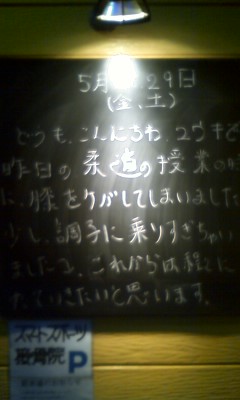 5月 29日
(金、土)
どうも、こんにちわ、
昨日の柔道の授業の時
に、膝をケガしてしまいました
少し、調子に乗りすぎちゃい
ました。これからは
いきたいと思います。
スマートスポーツ
接骨院 P